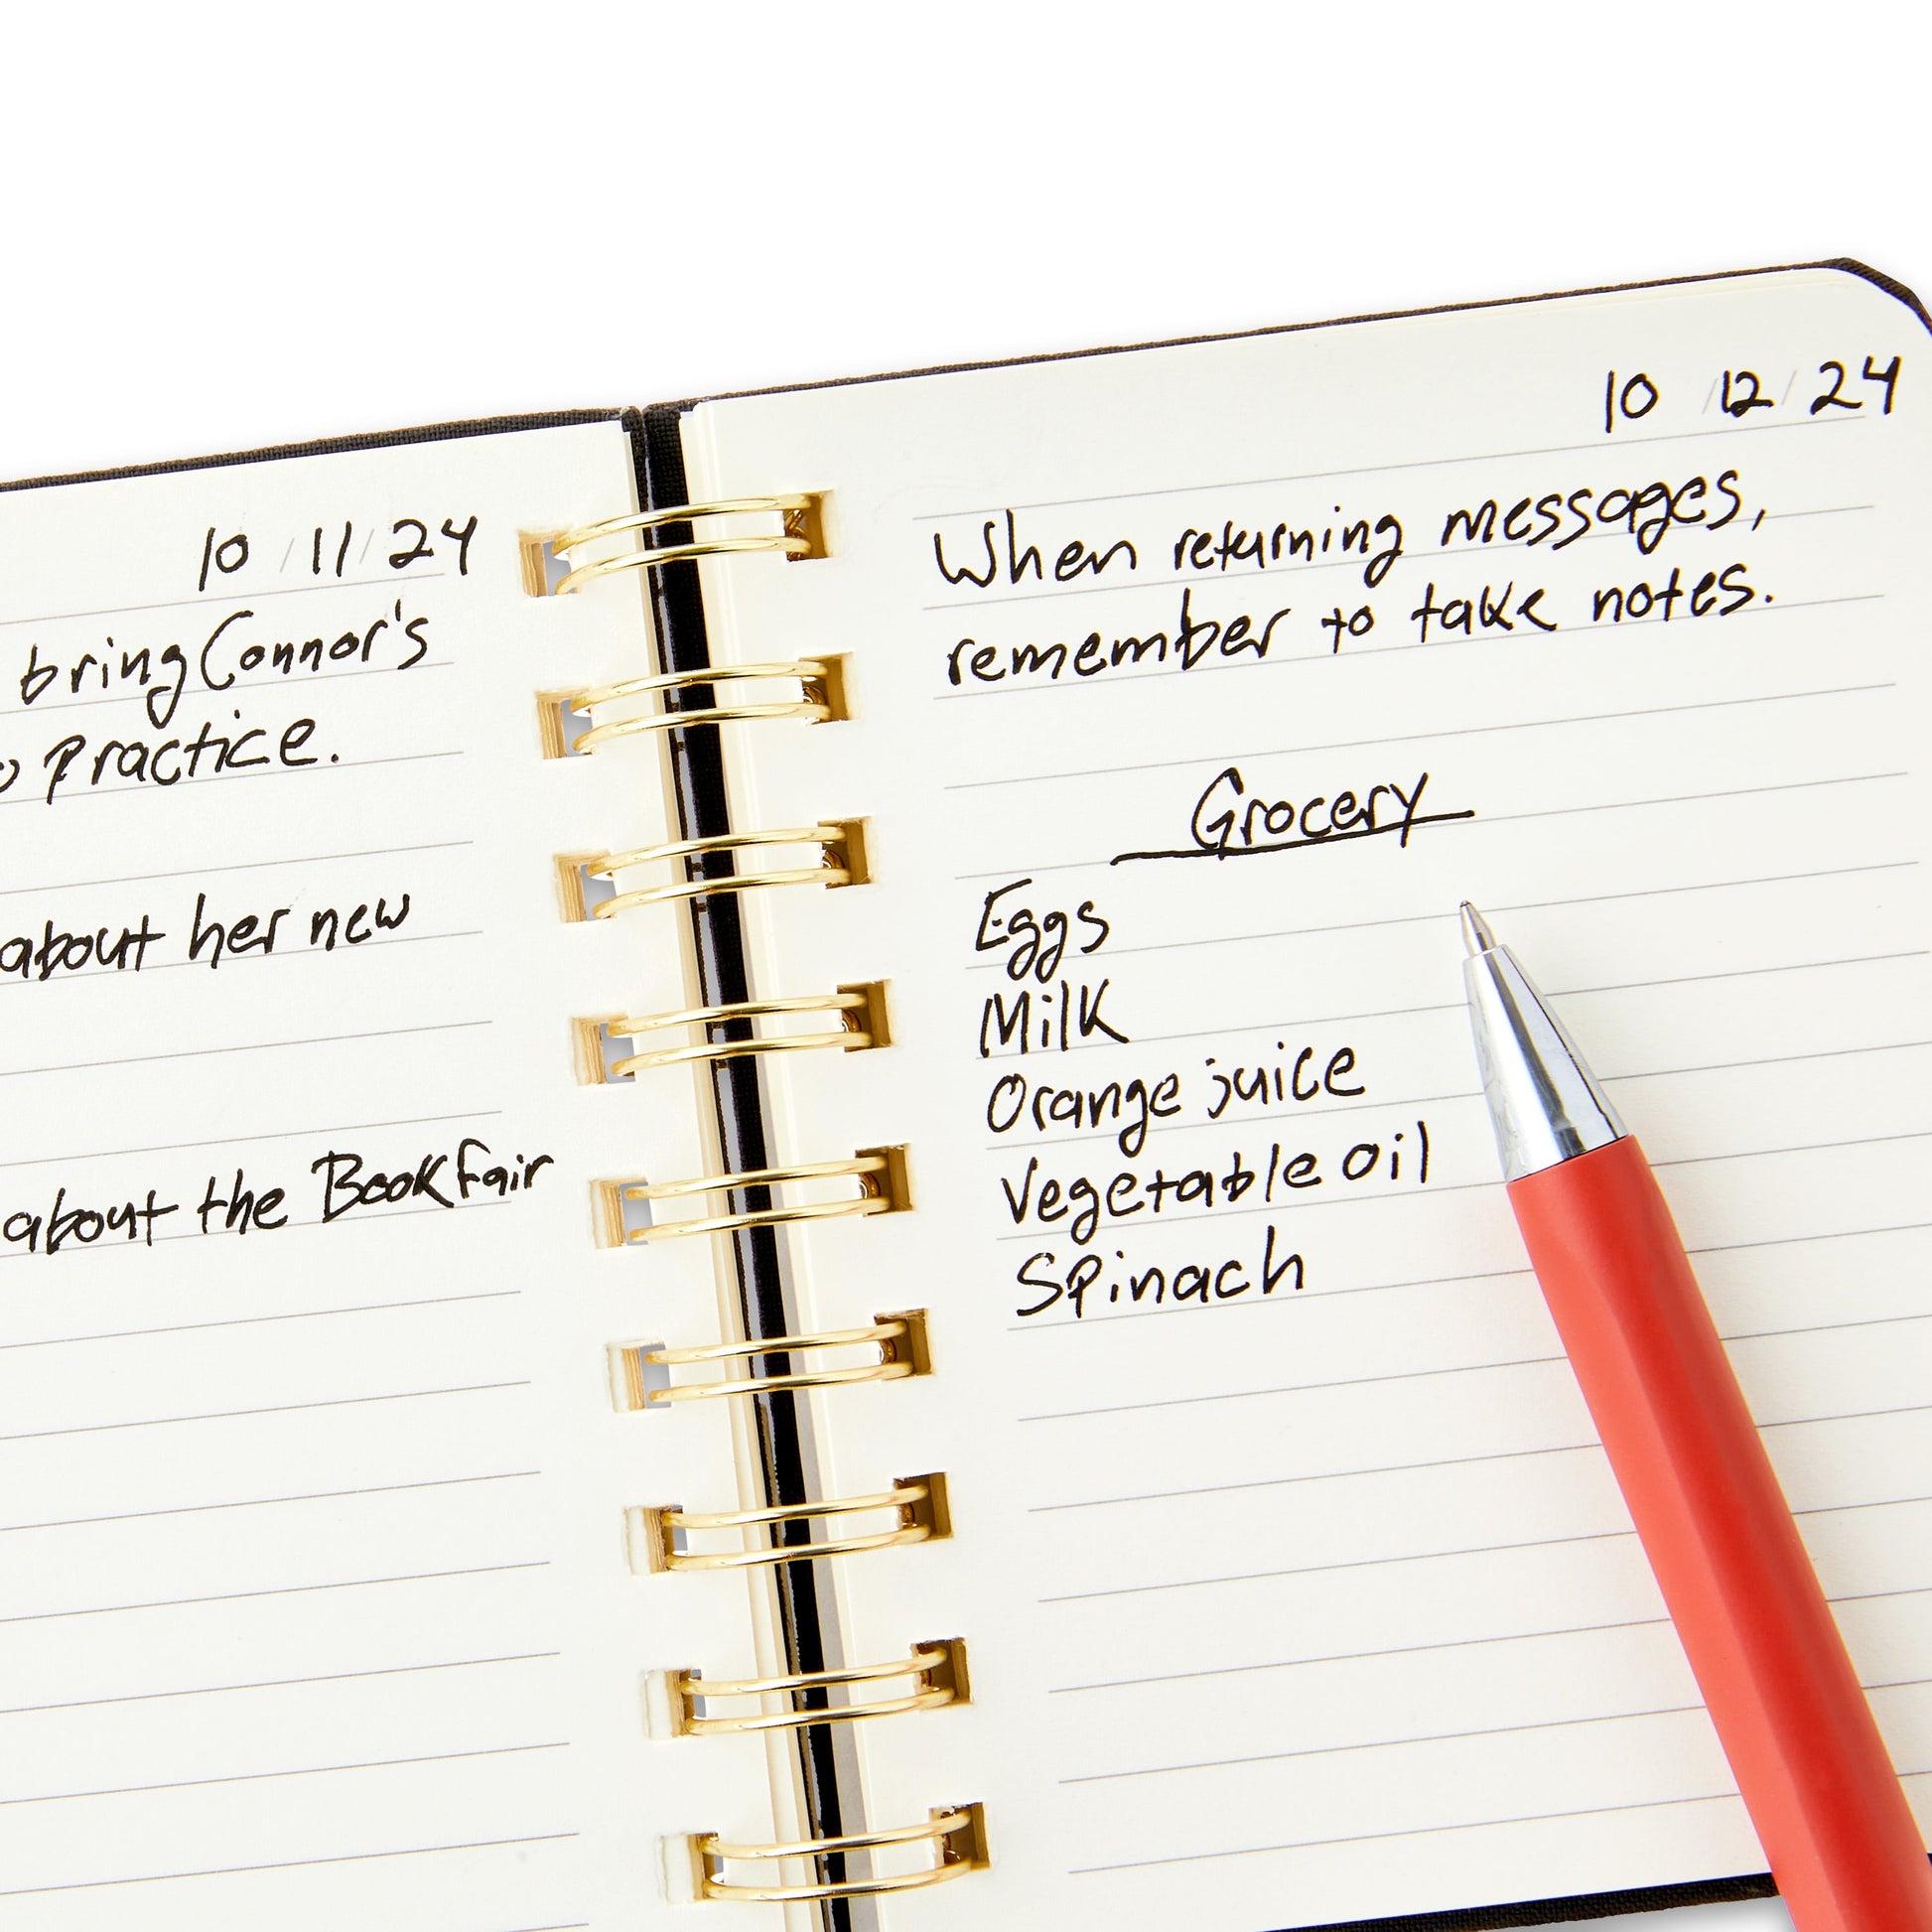 10 / 11 / 24
bring Connor's
practice.
about her new
about the Book Fair
10 / 12 / 24
When returning messages,
remember to take notes.
Grocery
Eggs
Milk
Orange juice
Vegetable oil
Spinach